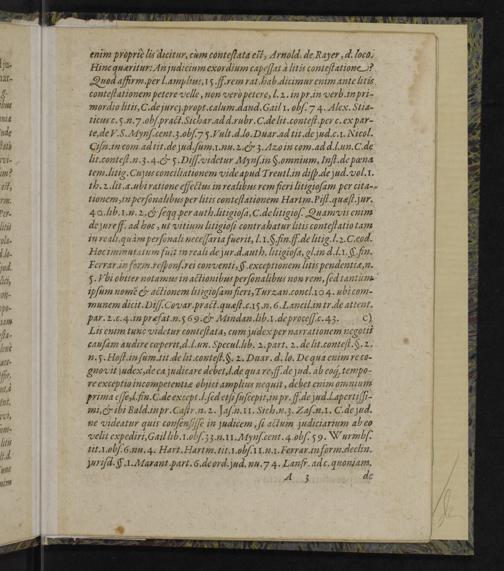 enim propriè lis dicitur, cùm contestata est, Arnold. de Rayer, d. loco.
Hinc quæritur: An judicium exordium capessat à litis contestatione?
Quod affirm. per l. amplius, 15. ff. rem rat. hab. dicimur enim ante litis
contestationem petere velle, non verò petere, l. 2. in pr. in verb. in pri-
mordio litis, C. de jurej. propt. calum. dand. Gail 1. obs. 74. Alex. Stia-
ticus c. 5. n. 7. obs. pract. Sichar. ad d. rubr. C. de lit. contest. per c. ex par-
te, de V. S. Myns. cent. 3. obs. 75. Vult. d. lo. Duar. ad tit. de jud. c. 1. Nicol.
Cisn. in com. ad tit. de jud. sum. 1. nu. 2. & 3. Azo in com. ad d. l. un. C. de
lit. contest. n. 3. 4. & 5. Diss. videtur Myns. in §. omnium, Inst. de pœna
tem. litig. Cujus conciliationem vide apud Treutl. in disp. de jud. vol. 1.
th. 2. lit. a. ubi ratione effectus in realibus rem fieri litigiosam per cita-
tionem, in personalibus per litis contestationem Hartm. Pist. quæst. jur.
40. lib. 1. n. 2. & seqq. per auth. litigiosa, C. de litigios. Quamvis enim
de jure ff. ad hoc, ut vitium litigiosi contrahatur litis contestatio tam
in reali, quàm personali necessaria fuerit, l. 1. §. fin. ff. de litig. l. 2. C. eod.
Hoc immutatum fuit in reali de jur. d. auth. litigiosa, gl. in d. l. 1. §. fin.
Ferrar. in form. respons. rei conventi, §. exceptionem litis pendentia, n.
5. Vbi obiter notamus in actionibus personalibus non rem, sed tantùm
ipsum nomē & actionem litigiosam fieri, Turzan. concl. 104. ubi com-
munem dicit. Diss. Covar. pract. quæst. c. 15. n. 6. Lancil. in tr. de attent.
par. 2. c. 4. in præfat. n. 569. & Mindan. lib. 1. de process. c. 43. c)
Lis enim tunc videtur contestata, cum judex per narrationem negotii
causam audire cœperit, d. l. un. Specul. lib. 2. part. 2. de lit. contest. §. 2.
n. 5. Host. in sum. tit. de lit. contest. §. 2. Duar. d. lo. De qua enim re co-
gnovit judex, de ea judicare debet, l. de qua re ff. de jud. ab eoq; tempo-
re exceptio incompetentiæ objici amplius nequit, debet enim omnium
prima esse, l. fin. C. de except. l. sed etsi susceperit, in pr. ff. de jud. l. apertissi-
mi, & ibi Bald. in pr. Castr. n. 2. Jas. n. 11. Sich. n. 3. Zas. n. 1. C. de jud.
ne videatur quis consensisse in judicem, si actum judiciarium ab eo
velit expediri, Gail lib. 1. obs. 33. n. 11. Myns. cent. 4. obs. 59. Wurmbs.
tit. 1. obs. 6. nu. 4. Hart. Hartm. tit. 1. obs. 11. n. 1. Ferrar. in form. declin.
jurisd. §. 1. Marant. part. 6. de ord. jud. nu. 74. Lanfr. ad c. quoniam,
A 3 de